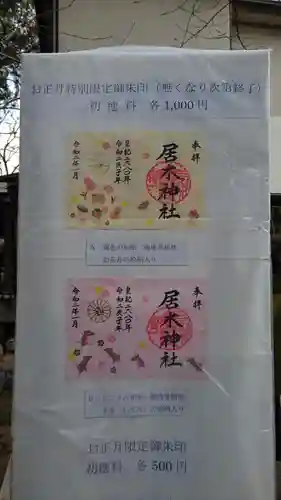 お正月特別限定御朱印（無くなり次第終了）
初穂料 各1,000円
奉拝
居木神社
皇紀二六八〇年
令和二庚子年
令和二年一月
奉拝
居木神社
皇紀二六八〇年
令和二庚子年
令和二年一月
お正月限定御朱印
初穂料 各500円